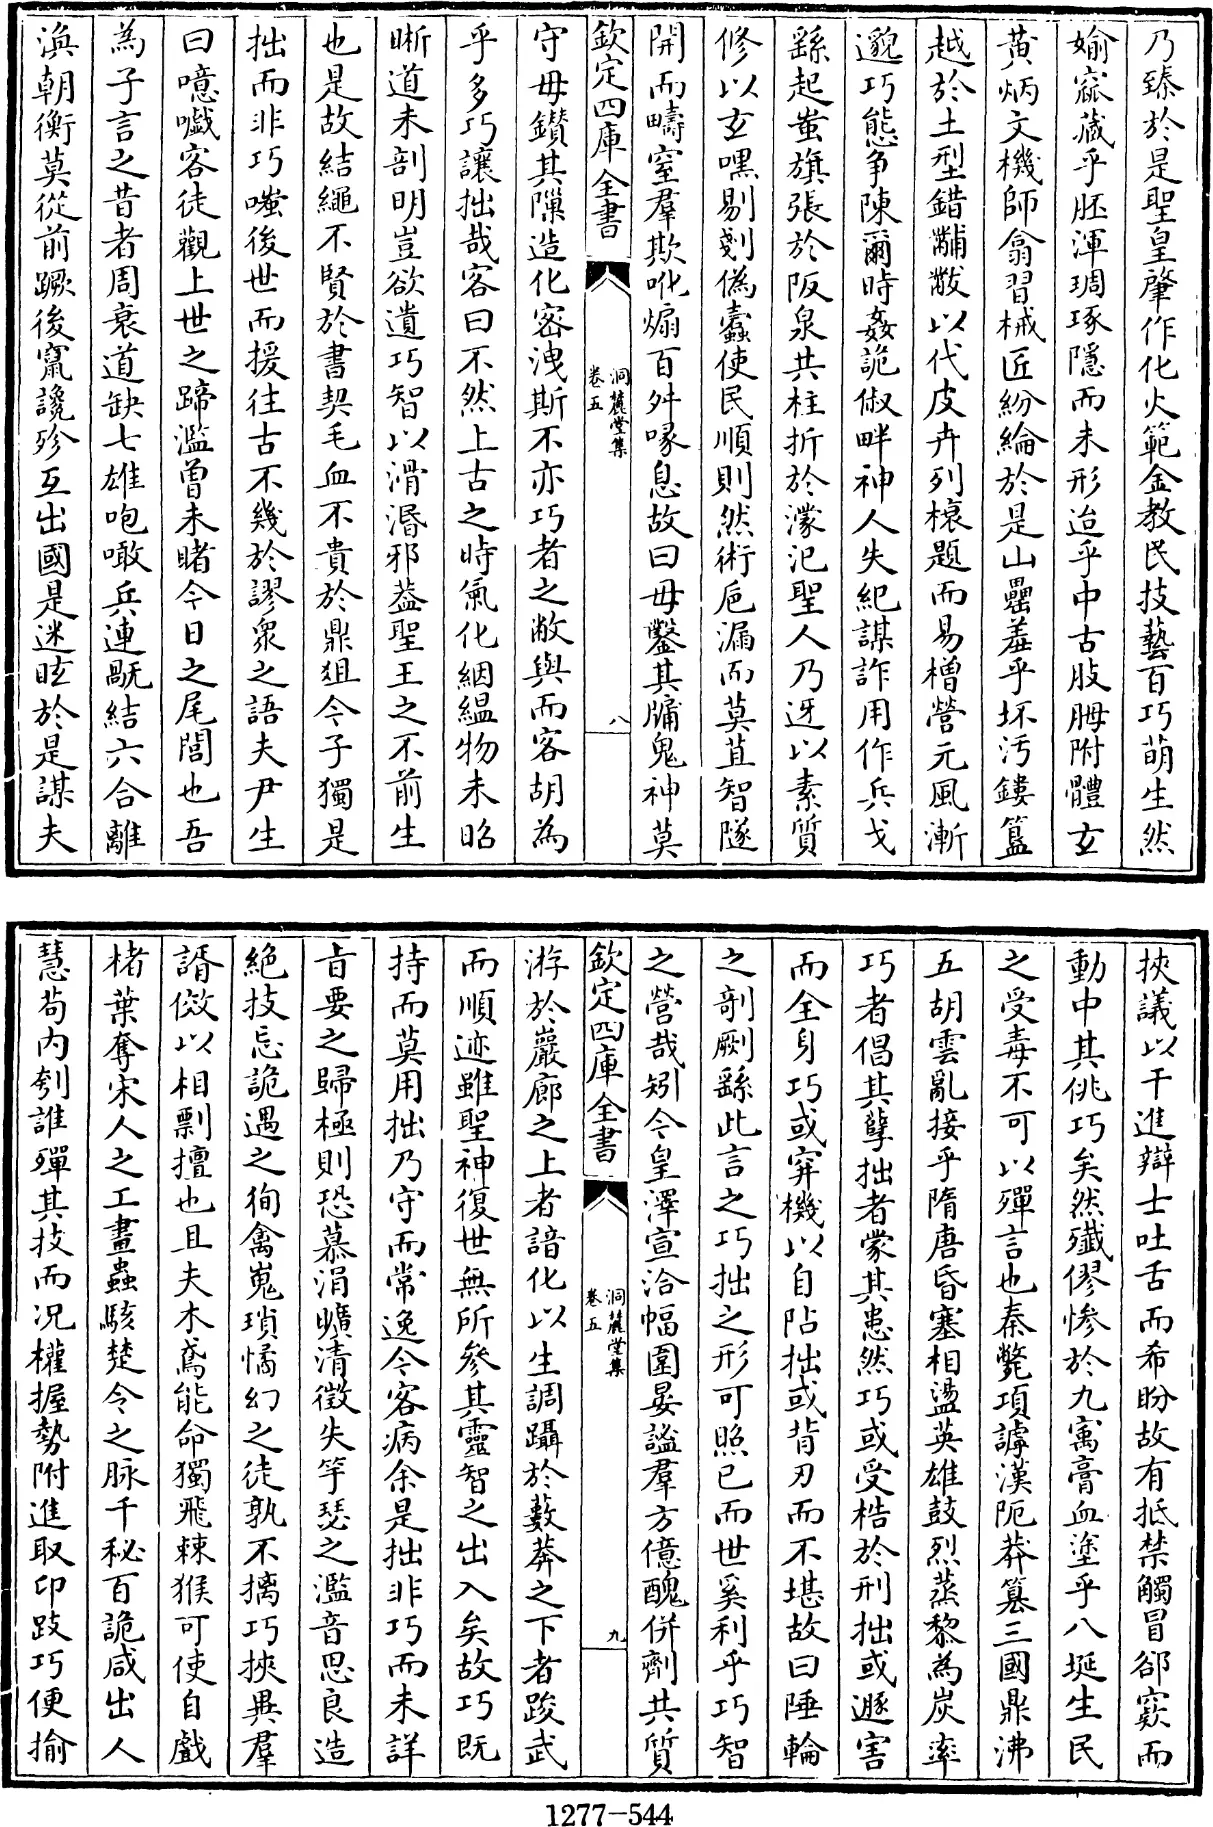 乃臻於是聖皇肇作化火範金教民技藝百巧萌生然
婾窳藏乎胚渾琱琢隱而未形迨乎中古肢胟附體玄
黄炳文機師翕習械匠紛綸於是山罍羞乎坏汚鏤簋
越於土型錯黼黻以代皮卉列榱題而易橧營元風漸
邈巧態爭陳爾時姦詭俶畔神人失紀謀詐用作兵戈
繇起蚩旗張於阪泉共柱折於濛汜聖人乃迓以素質
修以玄嘿剔剗僞蠧使民順則然術巵漏而莫苴智隧
開而疇窒羣欺吪煽百舛喙息故曰毋鑿其牖鬼神莫
欽定四庫全書
洞麓堂集
卷五
八
守毋鑚其隟造化密洩斯不亦巧者之敝與而客胡為
乎多巧讓拙哉客曰不然上古之時氣化絪縕物未昭
晣道未剖明豈欲遺巧智以滑湣邪葢聖王之不前生
也是故結繩不賢於書契毛血不貴於鼎俎今子獨是
拙而非巧嗤後世而援往古不幾於謬衆之語夫尹生
曰噫嚱客徒觀上世之蹄濫曾未睹今日之尾閭也吾
為子言之昔者周衰道缺七雄咆噉兵連䦧結六合離
渙朝衡莫從前蹶後竄讒殄互出國是迷眩於是謀夫
挾議以干進辯士吐舌而希盼故有抵禁觸冒郤窾而
動中其佻巧矣然殲僇慘於九寓膏血塗乎八埏生民
之受毒不可以殫言也秦斃項謼漢阨莽簒三國鼎沸
五胡雲亂接乎隋唐昏塞相盪英雄鼓烈蒸黎為炭率
巧者倡其孽拙者蒙其患然巧或受梏於刑拙或遯害
而全身巧或穽機以自阽拙或背刃而不堪故曰陲輪
之剞劂繇此言之巧拙之形可照已而世奚利乎巧智
之營哉矧今皇澤宣洽幅圍晏謐羣方億醜併劑共質
欽定四庫全書
洞麓堂集
卷五
九
游於巖廊之上者諳化以生調躡於藪莽之下者踆武
而順迹雖聖神復世無所參其靈智之出入矣故巧既
持而莫用拙乃守而常逸今客病余是拙非巧而未詳
㫖要之歸極則恐慕涓曠清徵失竽瑟之濫音思良造
絶技忘詭遇之徇禽嵬瑣憰幻之徒孰不摛巧挾異羣
諝傚以相剽擅也且夫木鳶能命獨飛棘猴可使自戲
楮葉奪宋人之工畫蟲駭楚令之脉千秘百詭咸出人
慧茍内刳誰殫其技而况權握勢附進取卬跂巧便揄
1277-544